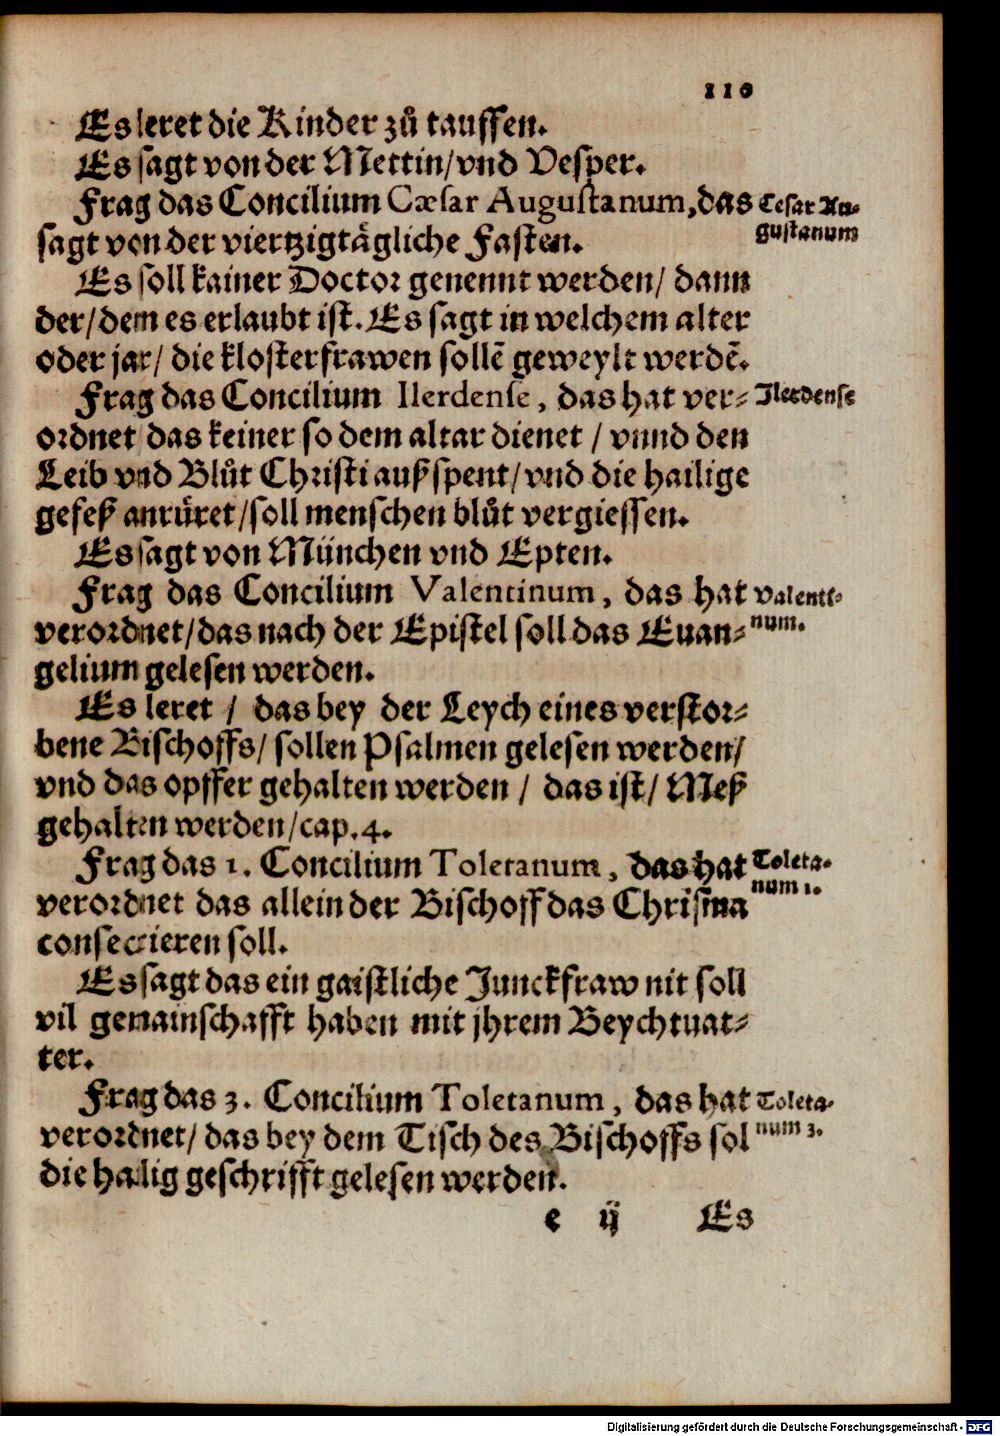 110
Es leret die Kinder zů tauffen.
Es sagt von der Mettin/vnd Vesper.
Frag das Concilium Cæsar Augustanum,das
sagt von der viertzigtägliche Fasten.
Cesar Au-
gustanum
Es soll kainer Doctor genennt werden/ dann
der/dem es erlaubt ist. Es sagt in welchem alter
oder jar/ die klosterfrawen sollē geweylt werdē.
Frag das Concilium Ilerdense, das hat ver-
Ilerdense
ordnet das keiner so dem altar dienet / vnnd den
Leib vnd Blůt Christi außspent/vnd die hailige
gefeß anrüret/soll menschen blůt vergiessen.
Es sagt von München vnd Epten.
Frag das Concilium Valentinum, das hat
verordnet/das nach der Epistel soll das Euan-
Valenti-
num.
gelium gelesen werden.
Es leret / das bey der Leych eines verstor-
bene Bischoffs/ sollen Psalmen gelesen werden/
vnd das opffer gehalten werden / das ist/ Meß
gehalten werden/cap.4.
Frag das 1. Concilium Toletanum, das hat
verordnet das allein der Bischoff das Chrisma
Toleta-
num 1.
consecrieren soll.
Es sagt das ein gaistliche Junckfraw nit soll
vil gemainschafft haben mit jhrem Beychtuat-
ter.
Frag das 3. Concilium Toletanum, das hat
verordnet/ das bey dem Tisch des Bischoffs sol
Toleta-
num 3.
die hailig geschrifft gelesen werden.
e ij Es
Digitalisierung gefördert durch die Deutsche Forschungsgemeinschaft - DFG